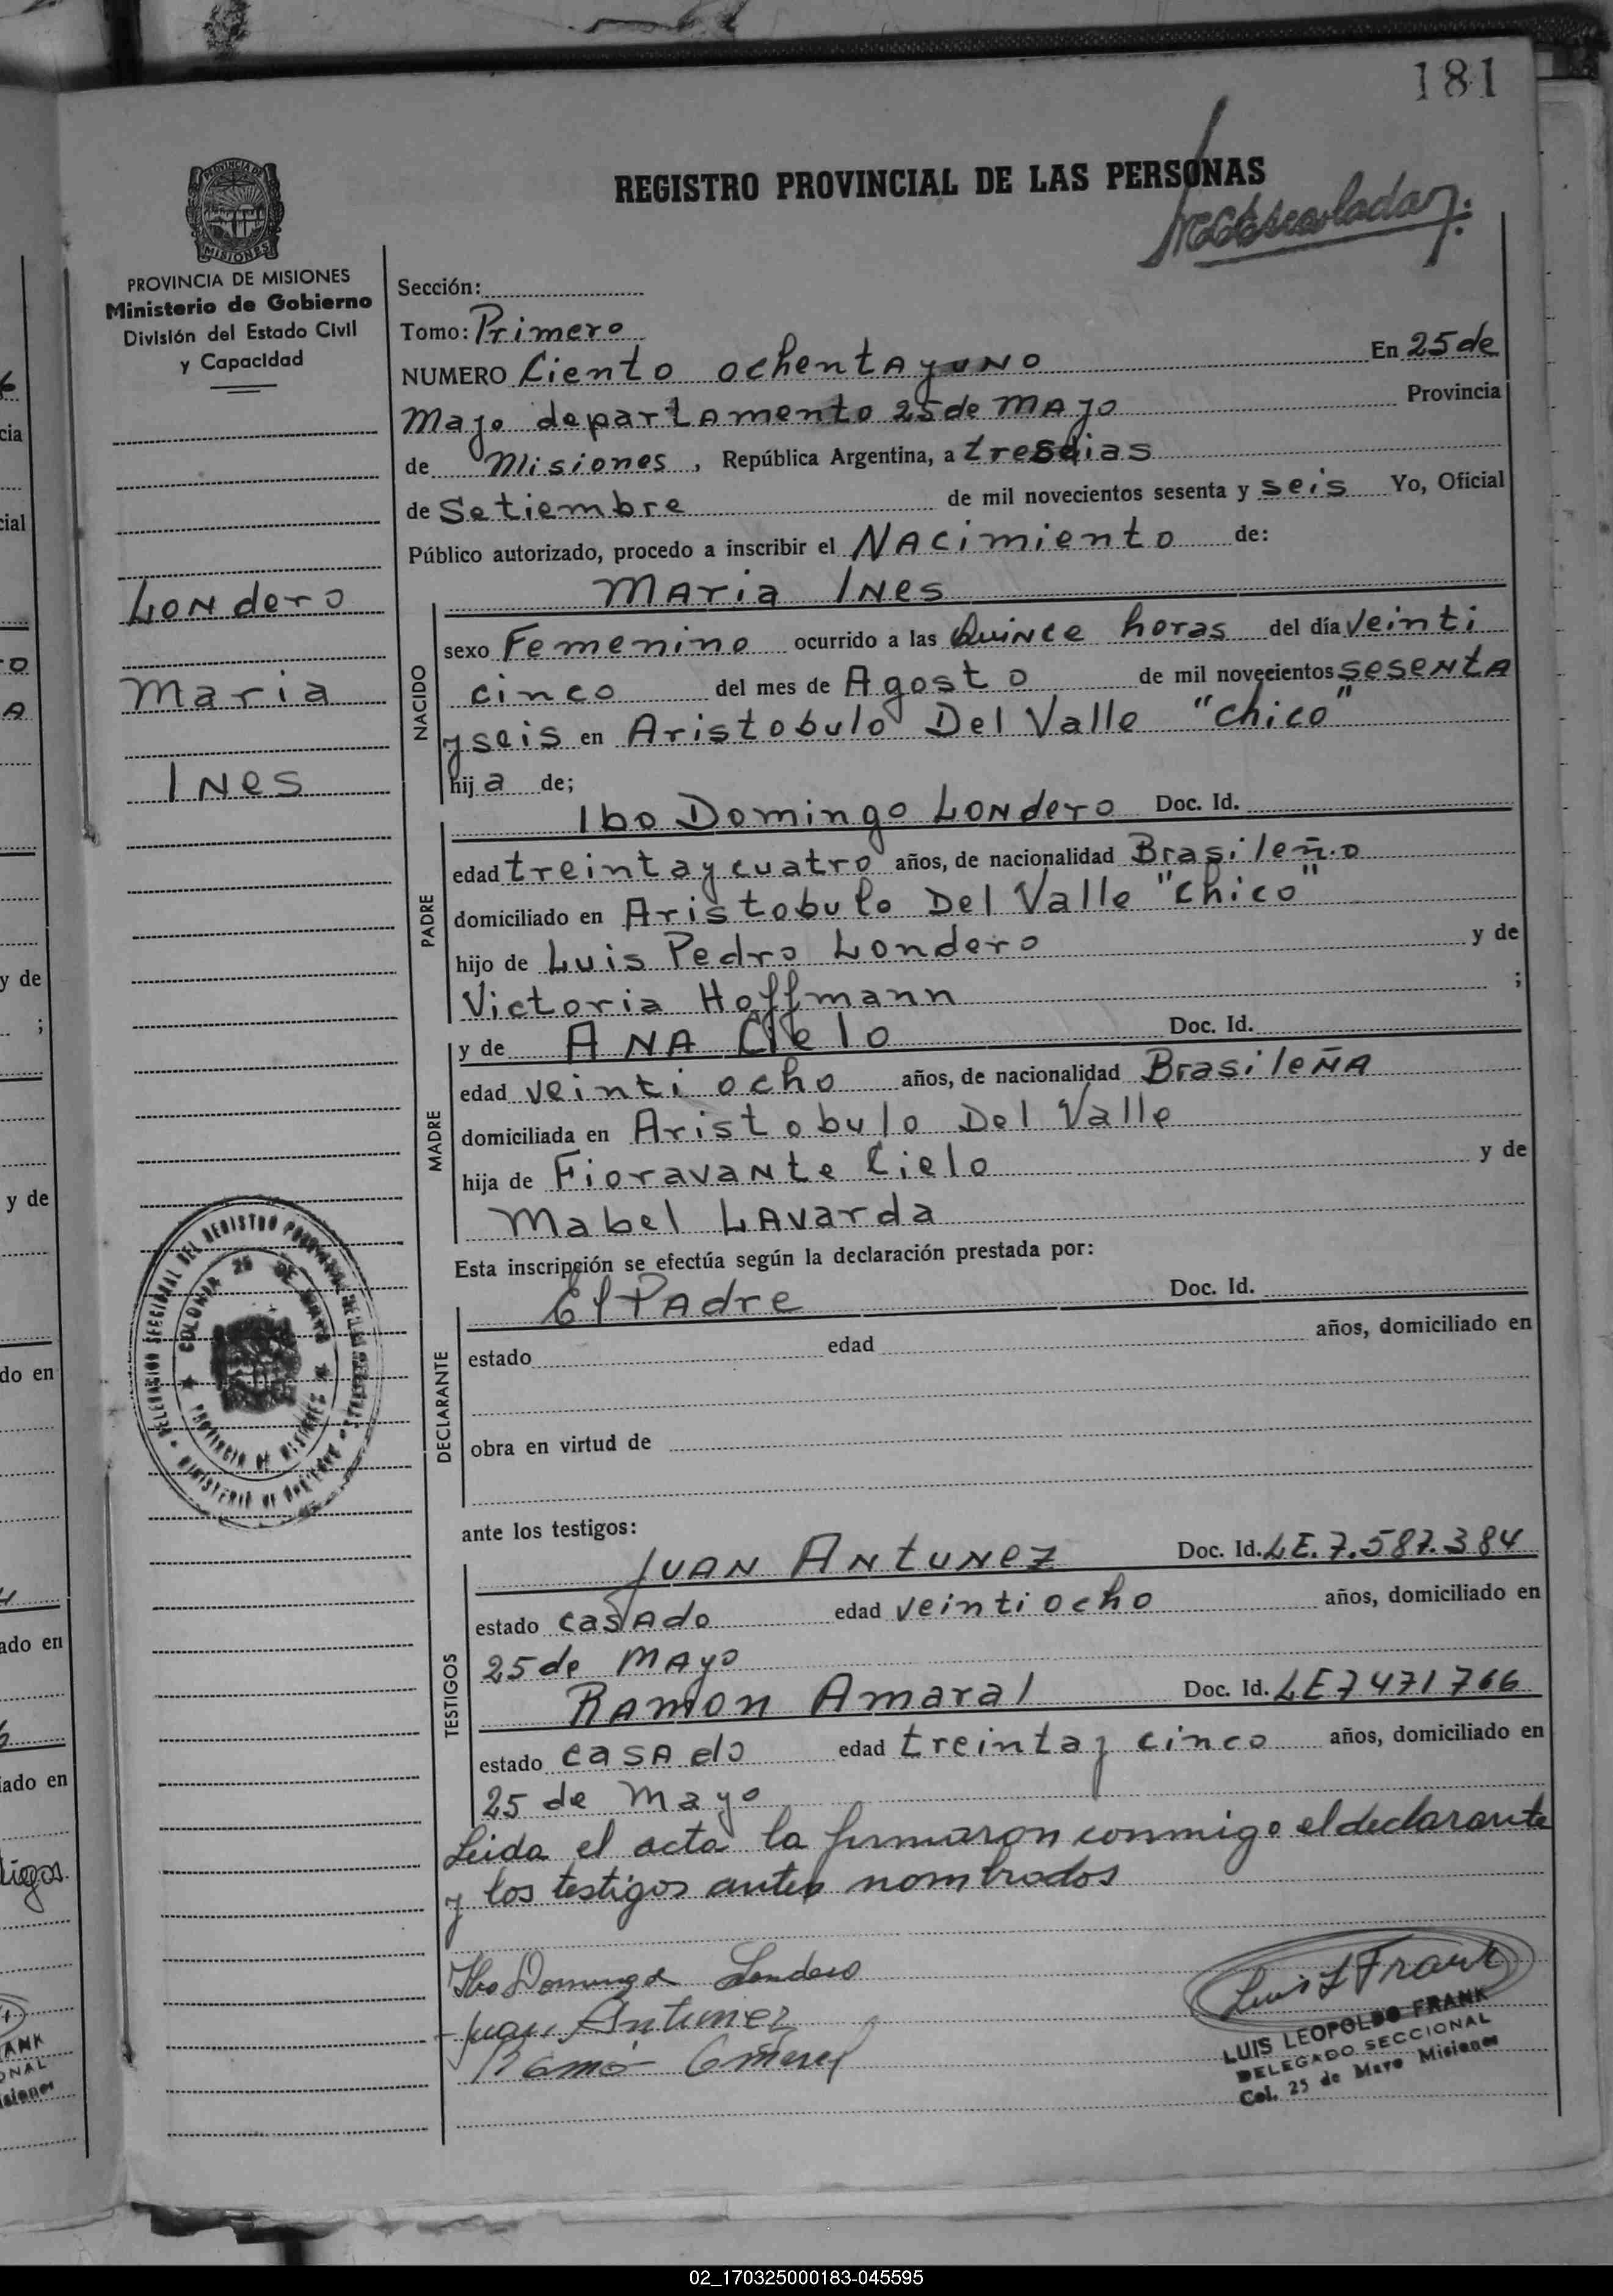 181
REGISTRO PROVINCIAL DE LAS PERSONAS
PROVINCIA DE MISIONES
PROVINCIA DE MISIONES
Ministerio de Gobierno
División del Estado Civil
y Capacidad
Londero
Maria
Ines
Sección:
Tomo: Primero
NUMERO Ciento ochenta y uno En 25 de
Mayo departamento 25 de Mayo Provincia
de Misiones, República Argentina, a tres dias
de Setiembre de mil novecientos sesenta y seis Yo, Oficial
Público autorizado, procedo a inscribir el Nacimiento de:
Maria Ines
NACIDO
sexo Femenino ocurrido a las Quince horas del día veinti
cinco del mes de Agosto de mil novecientos sesenta
y seis en Aristobulo Del Valle "Chico"
hija de;
Ibo Domingo Londero Doc. Id.
PADRE
edad treinta y cuatro años, de nacionalidad Brasileño
domiciliado en Aristobulo Del Valle "Chico"
hijo de Luis Pedro Londero y de
Victoria Hoffmann ;
y de Ana Cielo Doc. Id.
MADRE
edad veinti ocho años, de nacionalidad Brasileña
domiciliada en Aristobulo Del Valle
hija de Fioravante Cielo y de
Mabel Lavarda
Esta inscripción se efectúa según la declaración prestada por:
El Padre Doc. Id.
DECLARANTE
estado edad años, domiciliado en
obra en virtud de
ante los testigos:
Juan Antunez Doc. Id. LE.7.587.384
TESTIGOS
estado casado edad veinti ocho años, domiciliado en
25 de Mayo
Ramon Amaral Doc. Id. LE7471766
estado casado edad treinta y cinco años, domiciliado en
25 de Mayo
Leida el acta la firmaron conmigo el declarante
y los testigos antes nombrados
Ibo Domingo Londero
Juan Antunez
Ramón Amaral
Luis L Frank
LUIS LEOPOLDO FRANK
DELEGADO SECCIONAL
Col. 25 de Mayo Misiones
DELEGACION SECCIONAL DEL REGISTRO PROVINCIAL DE LAS PERSONAS
COLONIA 25 DE MAYO
PROVINCIA DE MISIONES
MINISTERIO DE GOBIERNO
cia
cial
y de
;
y de
do en
ado en
iado en
tigos
ANK
ONAL
isiones
02_170325000183-045595